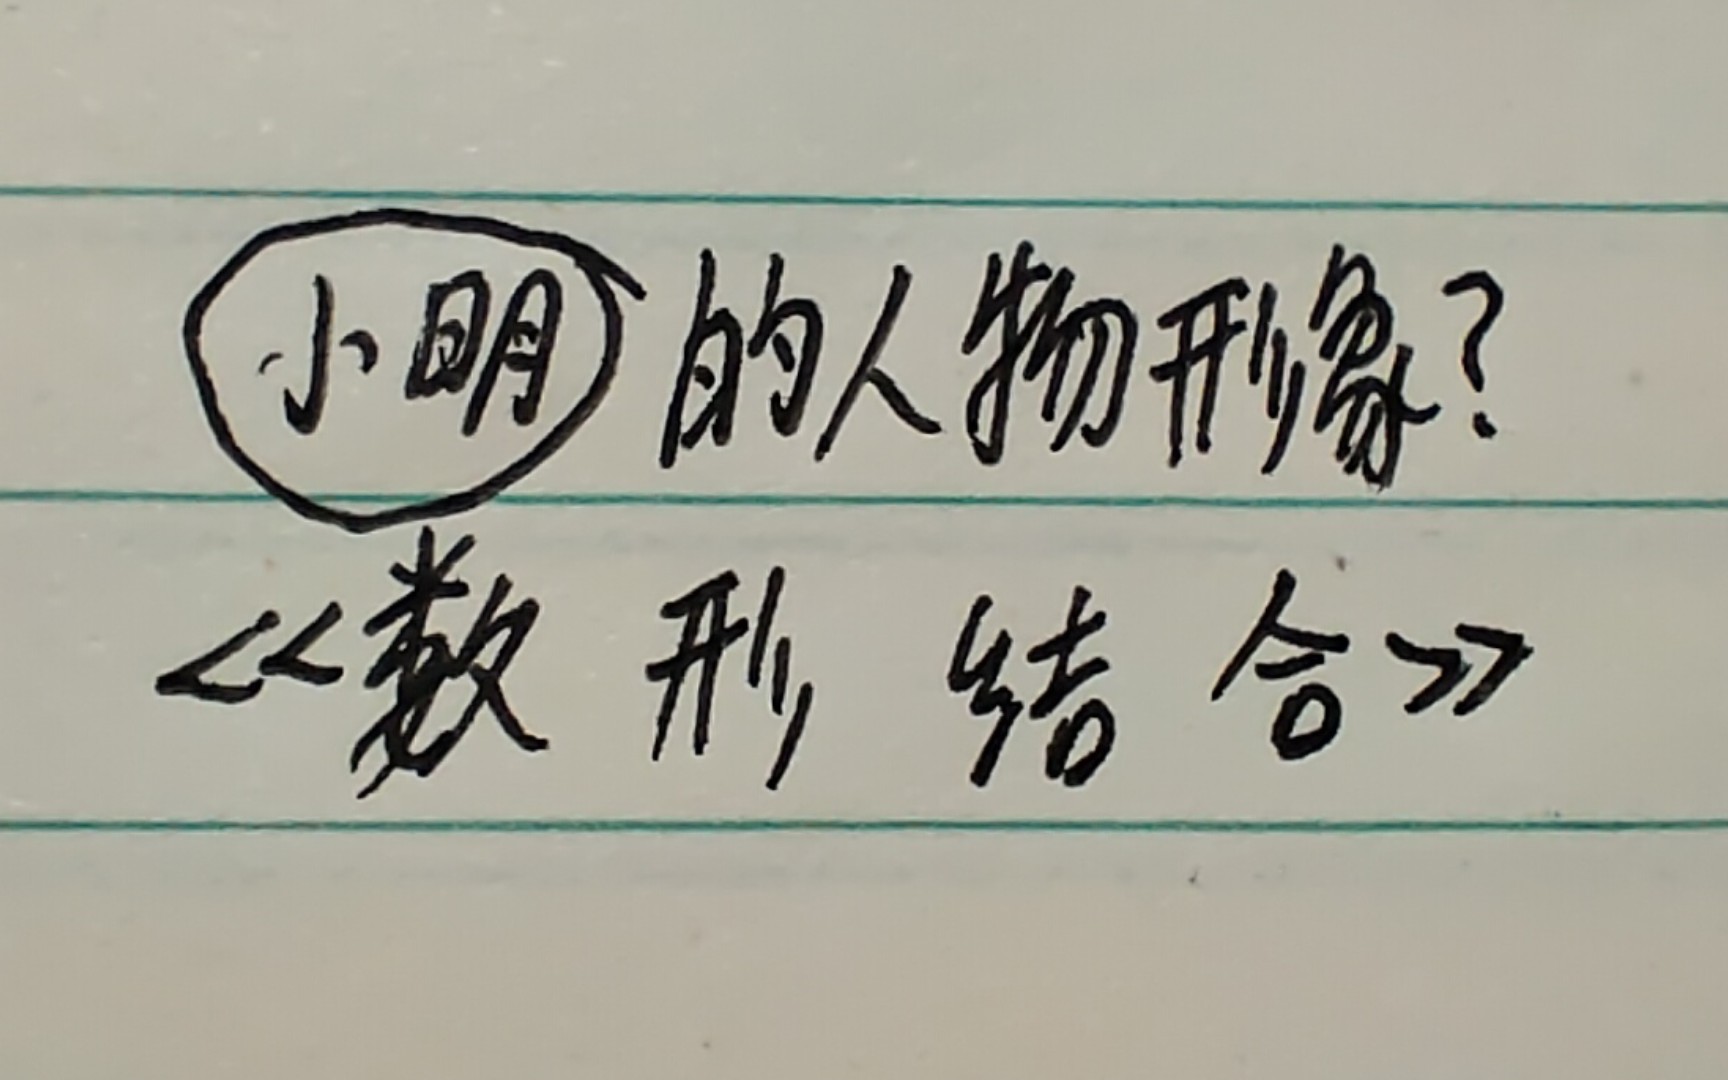 小明的人物形象?
<<数形结合>>